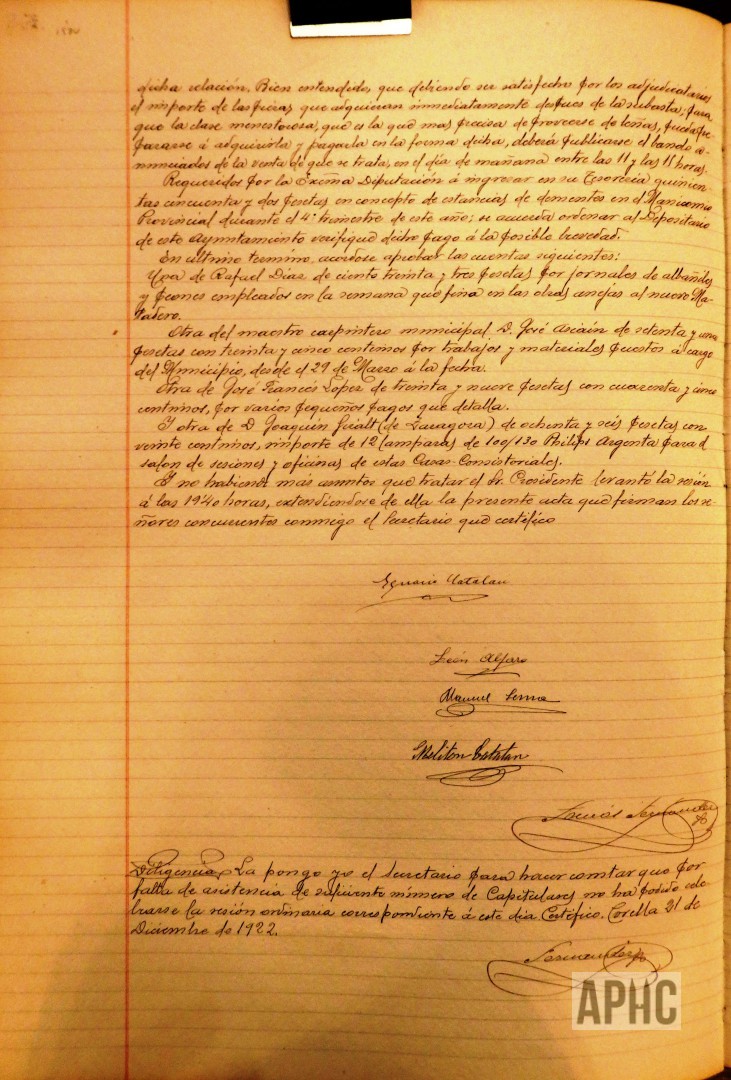 dicha relación. Bien entendido, que debiendo ser satisfecho por los adjudicatarios
el importe de las piezas que adquieran inmediatamente despues de la subasta, para
que la clase menesterosa, que es la que mas precisa de proveerse de leñas, pueda pre-
pararse á adquirirla y pagarla en la forma dicha, deberá publicarse el bando a-
nunciados de la venta de que se trata, en el dia de mañana entre las 11 y las 15 horas.
Requeridos por la Excma Diputación á ingresar en su Tesoreria quinien-
tas cincuenta y dos pesetas en concepto de estancias de dementes en el Manicomio
Provincial durante el 4º trimestre de este año; se acuerda ordenar al Depositario
de este Ayuntamiento verifique dicho pago á la posible brevedad.
En ultimo termino, acordose aprobar las cuentas siguientes:
Una de Rafael Diaz de ciento treinta y tres pesetas por jornales de albañiles
y peones empleados en la semana que fina en las obras anejas al nuevo Ma-
tadero.
Otra del maestro carpintero municipal D. José Asiain de setenta y una
pesetas con treinta y cinco centimos por trabajos y materiales puestos á cargo
del Municipio, desde el 29 de Marzo á la fecha.
Otra de José Francés Lopez de treinta y nueve pesetas con cuarenta y cinco
centimos, por varios pequeños pagos que detalla.
Y otra de D Joaquin Giralt (de Zaragoza) de ochenta y seis pesetas con
veinte centimos, importe de 12 lamparas de 100/130 Philips Argenta para el
salon de sesiones y oficinas de estas Casas-Consistoriales.
Y no habiendo más asuntos que tratar el Sr. Presidente levantó la sesión
á las 19'40 horas, extendiendose de ella la presente acta que firman los se-
ñores concurrentos conmigo el Secretario que certifico
Ignacio Catalan
León Alfaro
Manuel Serna
Meliton Catalan
Tomás Fernandez
Diligencia. La pongo yo el Secretario para hacer constar que por
falta de asistencia de suficiente número de Capitulares no ha podido cele-
brarse la sesión ordinaria correspondiente á este dia. Certifico. Corella 21 de
Diciembre de 1922.
Fernandez
APHC